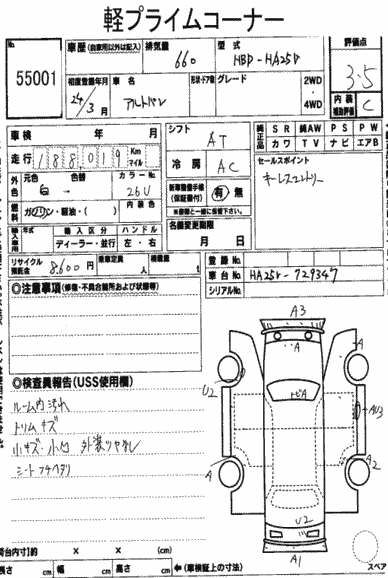 軽プライムコーナー
No. 55001
車歴 (自家用以外は記入) 排気量 660 型式 HBD-HA25V 評価点 3.5
初度登録年月 24/3月 車名 アルトバン 形状・ドア数 グレード 2WD・4WD 内装補助評価 C
車検 年 月 シフト AT 純正品 SR 純AW PS PW
カワ TV ナビ エアB
走行 188,019 Km マイル 冷房 AC セールスポイント
外色 元色 白 → 色替 カラーNo. 26U キーレスエントリー
燃料 ガソリン・軽油・( ) 内装色 新車整備手帳(保証書付) 有 無
※書類と一緒に保管下さい。
輸入車用 年式 輸入区分 ハンドル 名義変更期限
ディーラー・並行 左・右 月 日
リサイクル預託金 8,600円 乗車定員 人 積載量 t
登録No.
車台No. HA25V-729347
シリアルNo.
◎注意事項 (修復・不具合箇所および状態等)
A3
A
A
U2
トビA
AU3
A
A2
U2
A1
◎検査員報告 (USS使用欄)
ルーム内汚れ
トリムキズ
小キズ・小凹 外装ツヤ无し
シートフチヘタリ
荷台内寸(約 x x )cm
長さ cm 幅 cm 高さ cm ←(車検証上の寸法)
スペア